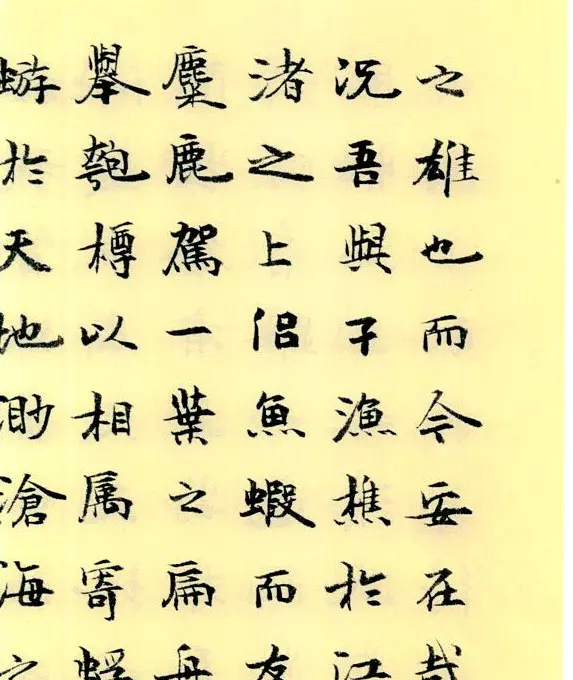 之雄也而今安在哉
況吾與子漁樵於江
渚之上侣魚蝦而友
麋鹿駕一葉之扁舟
舉匏樽以相属寄蜉
蝣於天地渺滄海之